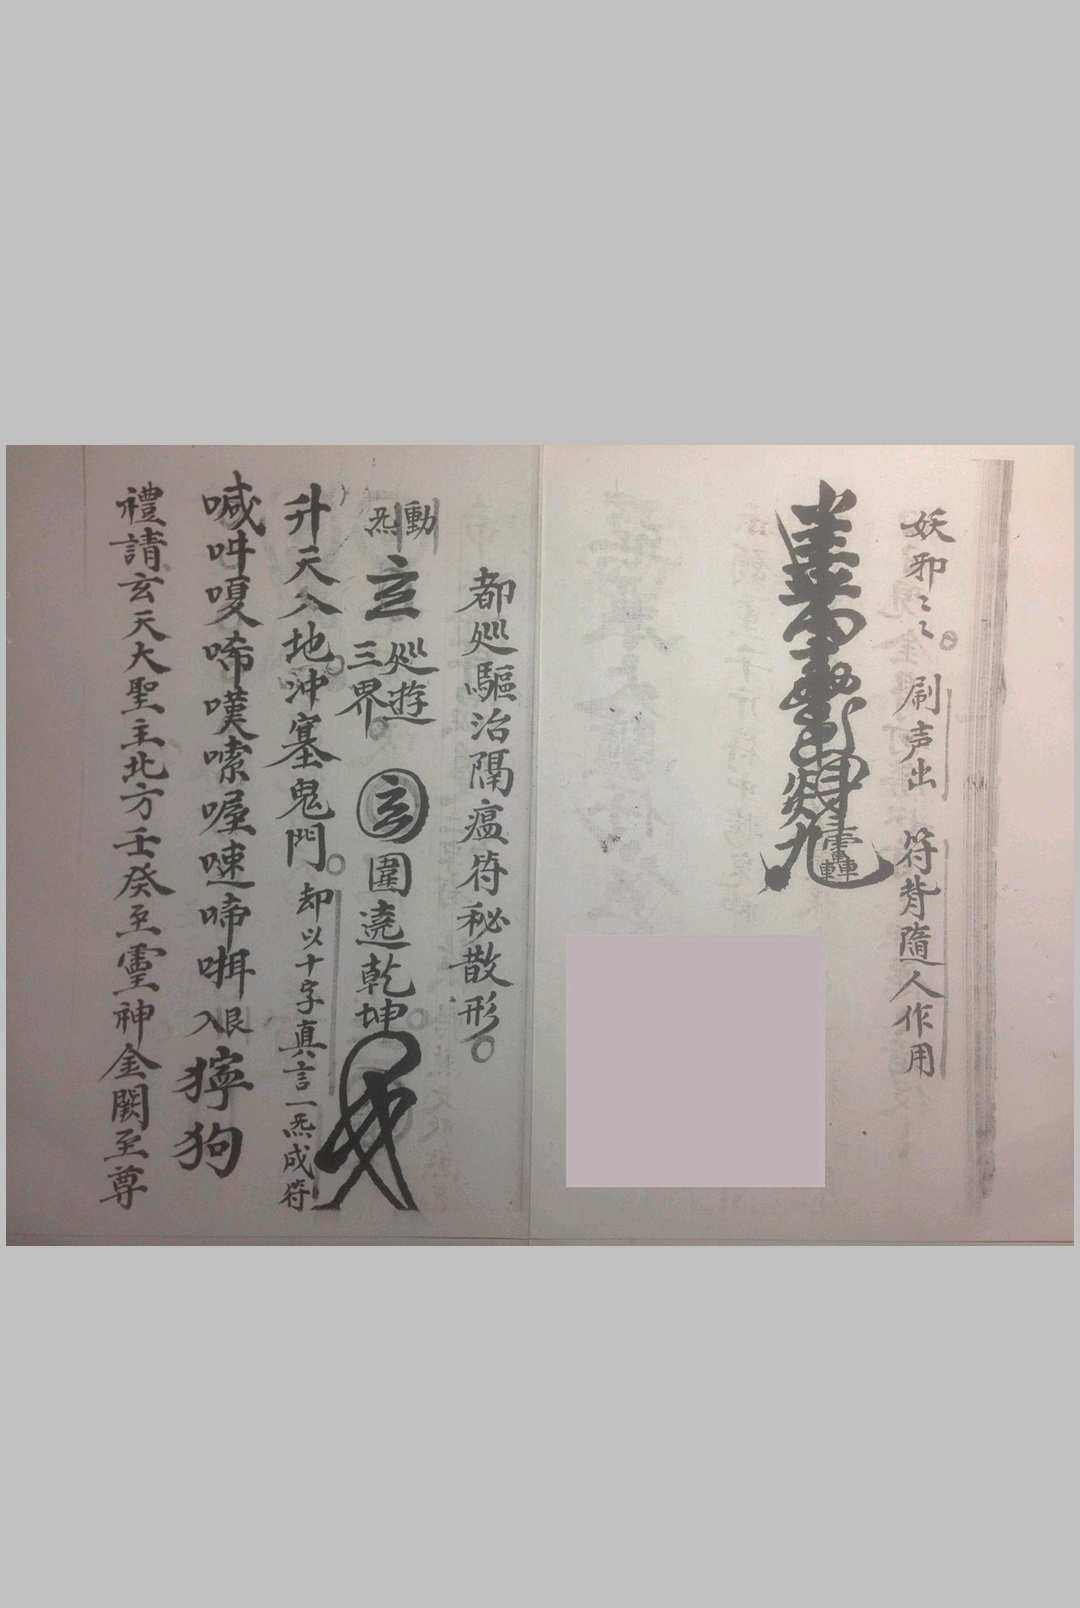 妖邪〻〻 刷声出 符背隨人作用
九 轟
都巡驅治隔瘟符秘散形
動炁 玄 巡遊三界 玄 圍遶乾坤
升天入地冲塞鬼門 却以十字真言一炁成符
喊吽嗄唏嘆嗦喔㖒啼㖇 獰狗
禮請玄天大聖主北方壬癸至靈神金闕至尊